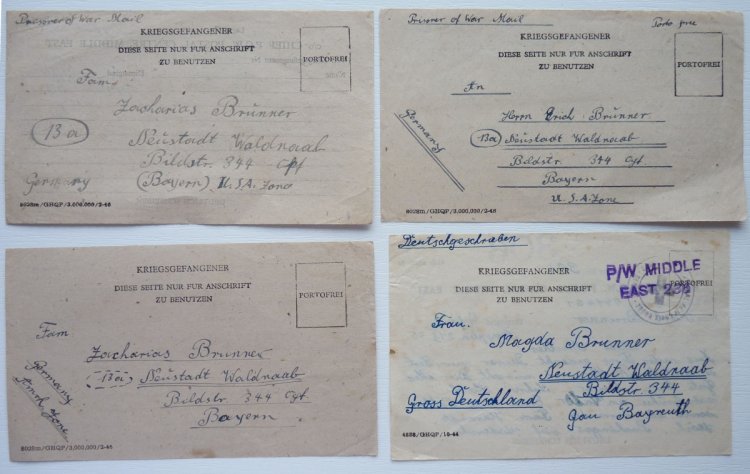 Prisoner of War Mail
KRIEGSGEFANGENER
DIESE SEITE NUR FUR ANSCHRIFT
ZU BENUTZEN
PORTOFREI
Fam.
Zacharias Brunner
13a
Neustadt Waldnaab
Bildstr. 344 Opf
Germany
(Bayern) U.S.A. Zone
8028m/GHQP/3,000,000/2-46
Prisoner of War Mail
Porto free
KRIEGSGEFANGENER
DIESE SEITE NUR FUR ANSCHRIFT
ZU BENUTZEN
PORTOFREI
An
Germany
Herrn Erich Brunner
13a Neustadt Waldnaab
Bildstr. 344 Opf
Bayern
U.S.A. Zone
8028m/GHQP/3,000,000/2-46
KRIEGSGEFANGENER
DIESE SEITE NUR FUR ANSCHRIFT
ZU BENUTZEN
PORTOFREI
Fam
Zacharias Brunner
13a Neustadt Waldnaab
Bildstr. 344 Opf
Bayern
Germany
Zone
8028m/GHQP/3,000,000/2-46
Deutschgeschrieben
KRIEGSGEFANGENER
DIESE SEITE NUR FUR ANSCHRIFT
ZU BENUTZEN
P/W MIDDLE
EAST
PORTOFREI
Frau.
Magda Brunner
Neustadt Waldnaab
Bildstr. 344
Gross Deutschland
Gau Bayreuth
4888/GHQP/10-44